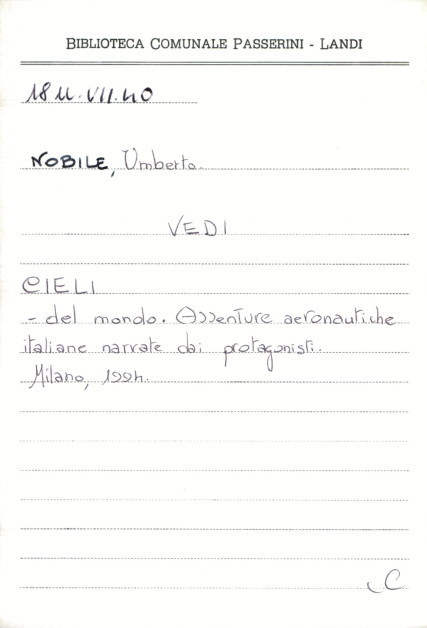 BIBLIOTECA COMUNALE PASSERINI - LANDI
18 U.VII.40
NOBILE, Umberto.
VEDI
CIELI
- del mondo. Avventure aeronautiche
italiane narrate dai protagonisti.
Milano, 1994.
C